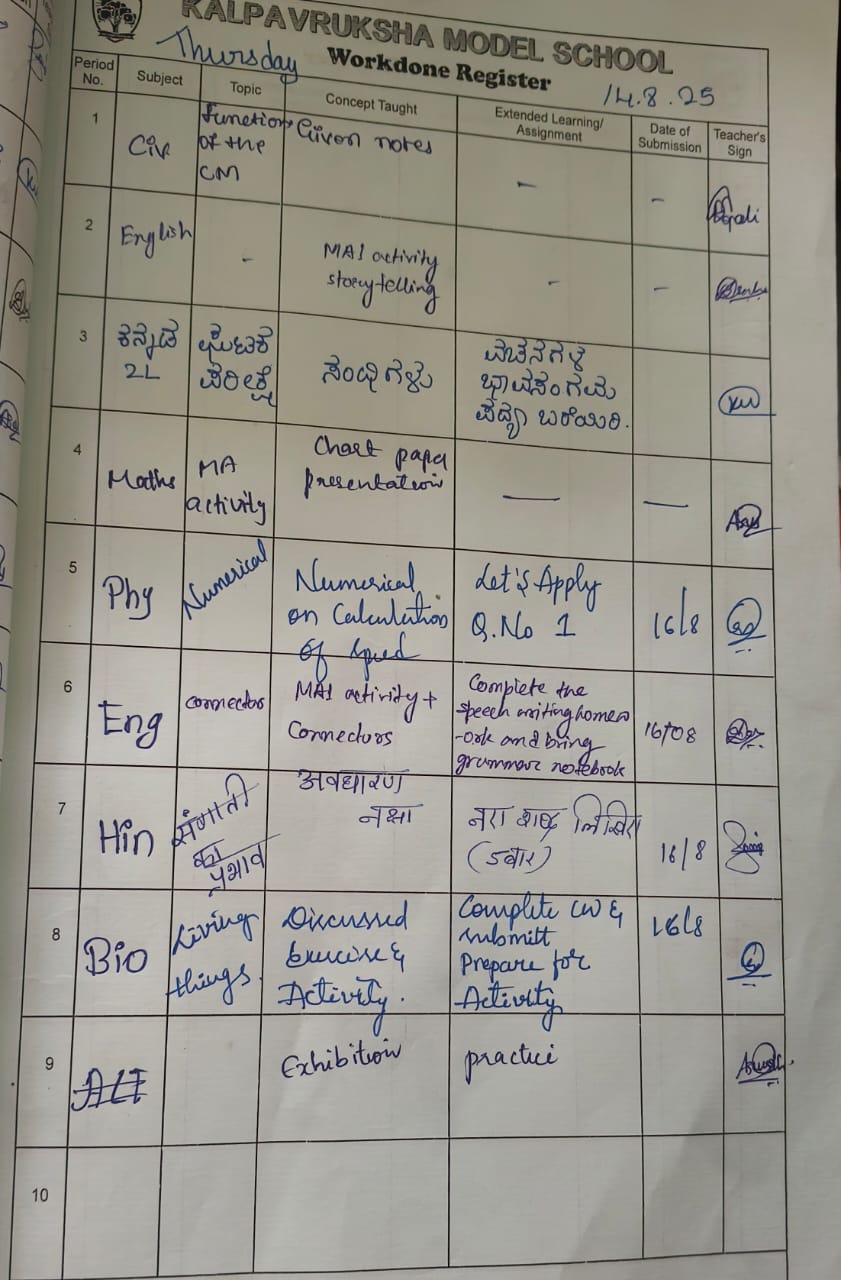 KALPAVRUKSHA MODEL SCHOOL
Thursday
Workdone Register
14.8.25
Period No.
Subject
Topic
Concept Taught
Extended Learning/ Assignment
Date of Submission
Teacher's Sign
1
Civ
functions
of the
CM
Given notes
-
-
2
English
-
MA1 activity
storytelling
-
-
3
ಕನ್ನಡ
2L
ಘಟಕ
ಪರೀಕ್ಷೆ
ಸಂಧಿಗಳು
ವಚನಗಳ
ಭಾವಸಂಗಮ
ಪದ್ಯ ಬರೆಯಿರಿ.
4
Maths
MA
activity
Chart paper
presentation
—
—
5
Phy
Numerical
Numerical
on Calculation
of speed
Let's Apply
Q.No 1
16/8
6
Eng
connectors
MA1 activity +
Connectors
Complete the
speech writing homew
-ork and bring
grammar notebook
16/08
7
Hin
का
प्रभाव
अवधारणा
नक्शा
शब्द
16/8
8
Bio
Living
things.
Discussed
Exercise &
Activity.
Complete CW &
submitt
Prepare for
Activity
16/8
9
ALT
Exhibition
practice
10